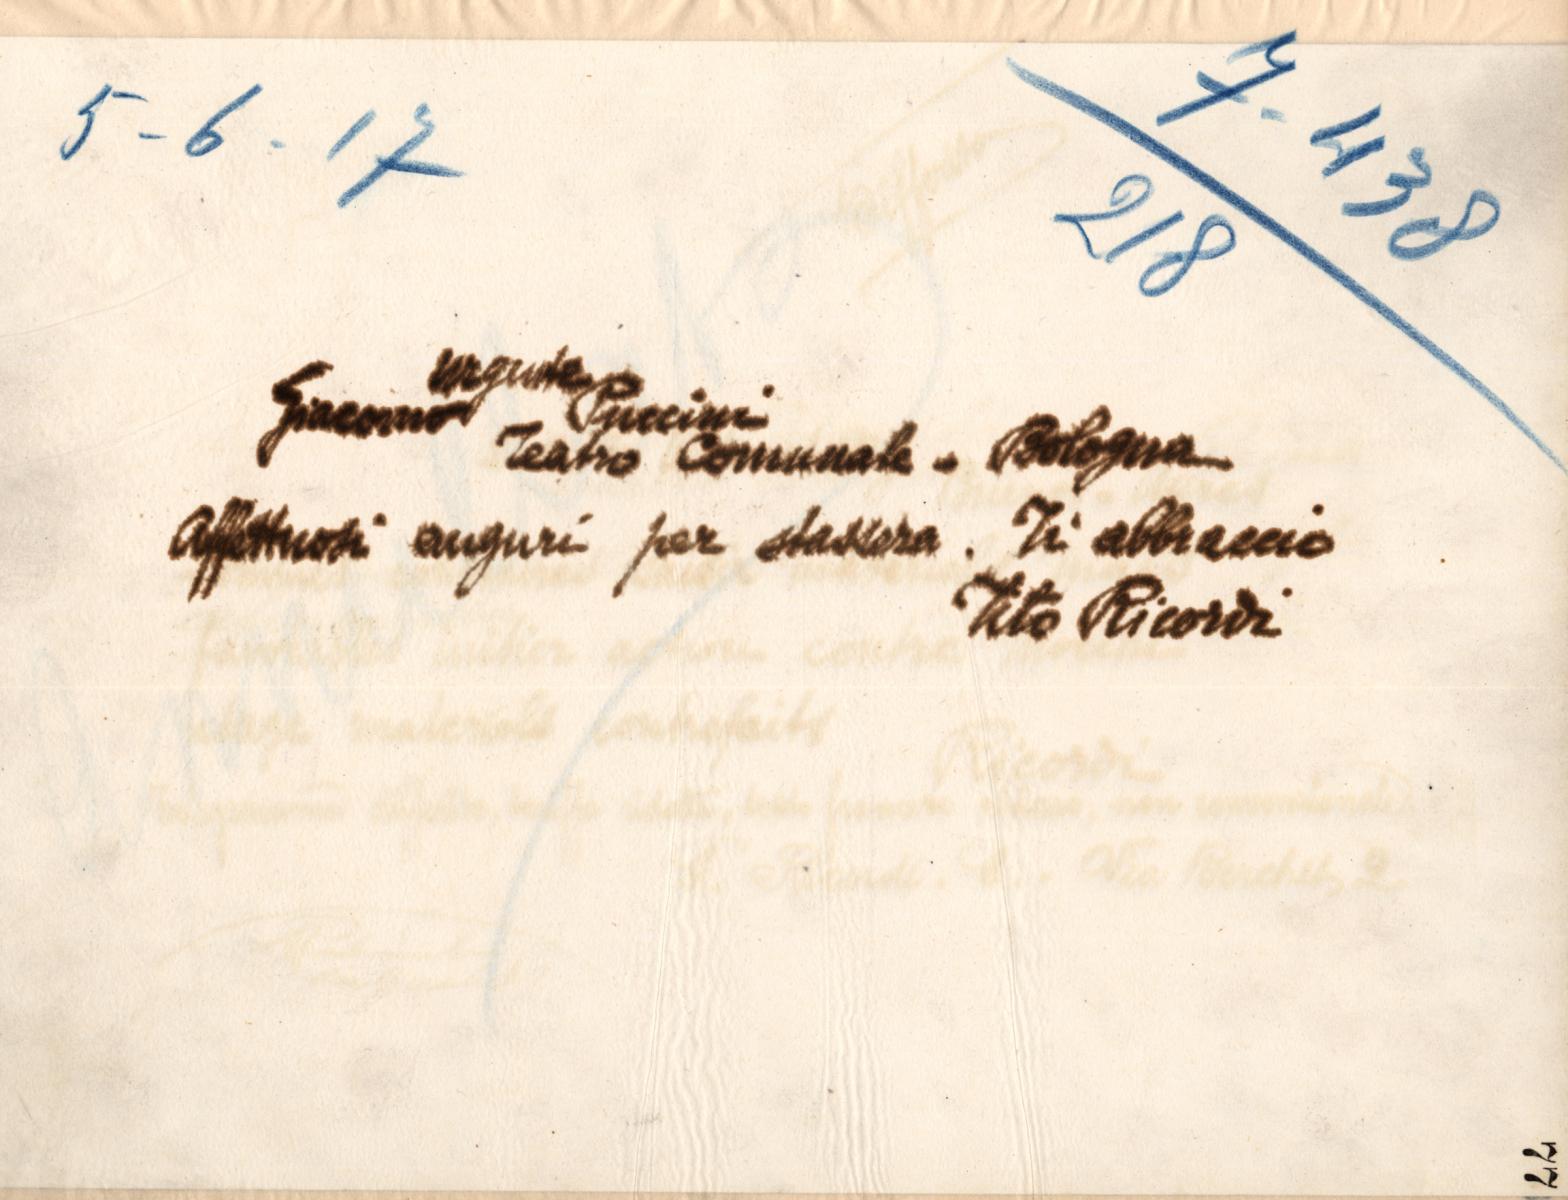 5-6-17
7-438
218
urgente
Giacomo Puccini
Teatro Comunale. Bologna
Affettuosi auguri per stassera. Ti abbraccio
Tito Ricordi
22